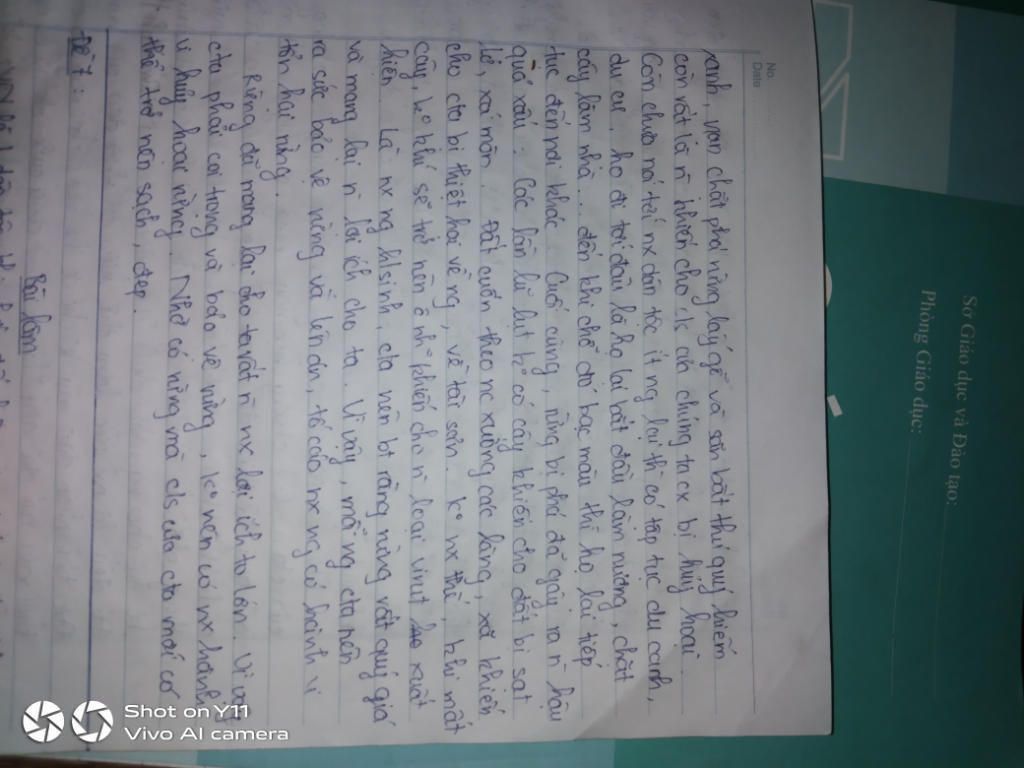 No.
Date
ranh, nạn chặt phá rừng lấy gỗ và săn bắt thú quý hiếm
còn rất là n` khiến cho ... của chúng ta cx bị huỷ hoại.
Còn chưa nói tới nx dân tộc ít ng lại thì có tập tục du canh,
du cư, họ đi tới đâu là họ lại bắt đầu làm nương, chặt
cây làm nhà... đến khi chỗ đó bạc màu thì họ lại tiếp
tục đến nơi khác. Cuối cùng, rừng bị phá đã gây ra n` hậu
quả xấu. Các lần lũ lụt k° có cây khiến cho đất bị sạt
lở, xói mòn. Đất cuốn theo nc xuống các lòng, xã khiến
cho cta bị thiệt hại về ng, về tài sản. K° nx thế, khi mất
cây, k° khí sẽ trở nên ô nh° khiến cho n` loại virut xuất
hiện. Là nx ng hsinh, cta nên bt rằng rừng rất quý giá
và mang lại n` lợi ích cho ta. Vì vậy, mỗi ng cta nên
ra sức bảo vệ rừng và lên án, tố cáo nx ng có hành vi
tổn hại rừng.
Rừng đã mang lại cho ta rất n` nx lợi ích to lớn. Vì vậy
cta phải coi trọng và bảo vệ rừng, k° nên có nx hành
vi huỷ hoại rừng. Nhờ có rừng mà c/s của cta mới có
thể trở nên sạch, đẹp.
Đề 7:
Bài làm
Sở Giáo dục và Đào tạo:
Phòng Giáo dục:
Shot on Y11
Vivo AI camera